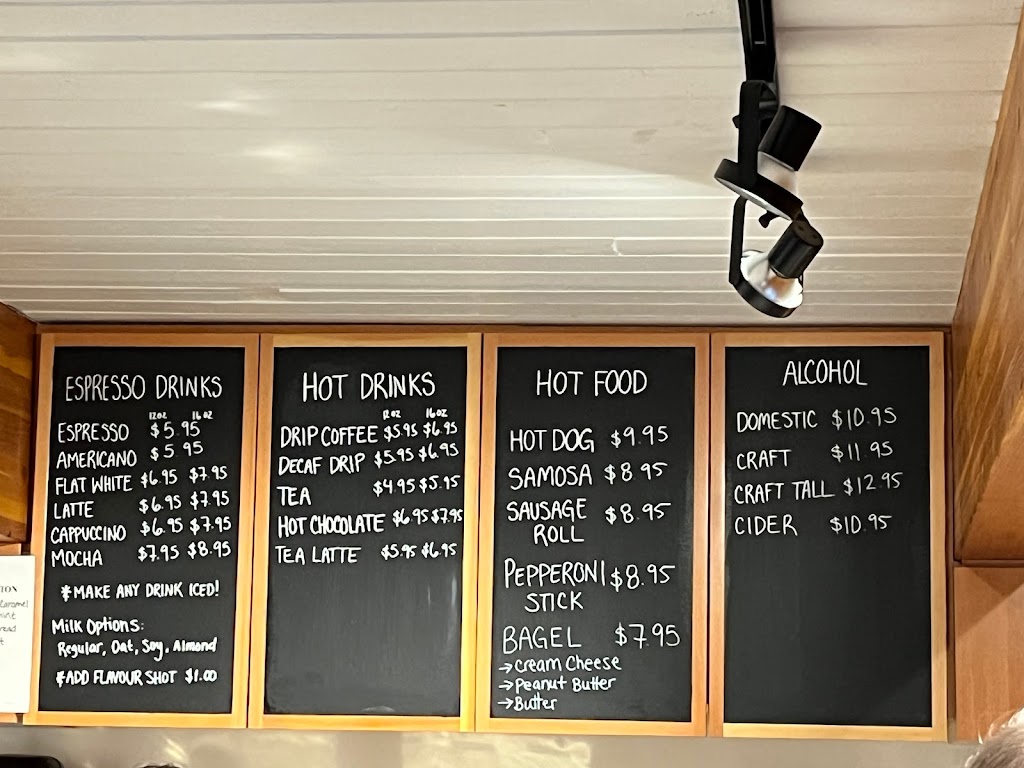 ESPRESSO DRINKS
12 oz 16 oz
ESPRESSO $5.95
AMERICANO $5.95
FLAT WHITE $6.95 $7.95
LATTE $6.95 $7.95
CAPPUCCINO $6.95 $7.95
MOCHA $7.95 $8.95
*MAKE ANY DRINK ICED!
Milk Options:
Regular, Oat, Soy, Almond
*ADD FLAVOUR SHOT $1.00
HOT DRINKS
12 oz 16 oz
DRIP COFFEE $5.95 $6.95
DECAF DRIP $5.95 $6.95
TEA $4.95 $5.95
HOT CHOCOLATE $6.95 $7.95
TEA LATTE $5.95 $6.95
HOT FOOD
HOT DOG $9.95
SAMOSA $8.95
SAUSAGE
ROLL $8.95
PEPPERONI $8.95
STICK
BAGEL $7.95
→Cream Cheese
→Peanut Butter
→Butter
ALCOHOL
DOMESTIC $10.95
CRAFT $11.95
CRAFT TALL $12.95
CIDER $10.95
Caramel